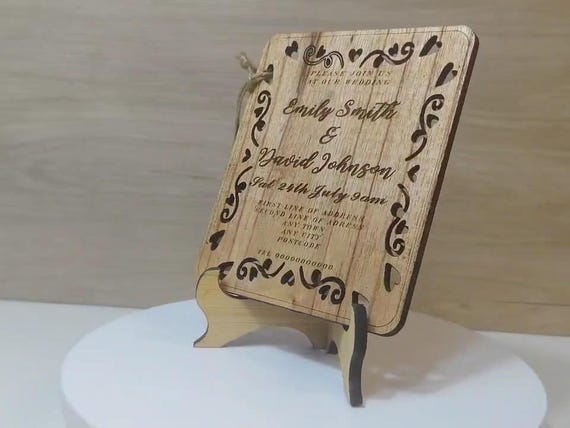 PLEASE JOIN US
AT OUR WEDDING
Emily Smith
&
David Johnson
Sat 24th July 9am
FIRST LINE OF ADDRESS
SECOND LINE OF ADRESS
ANY TOWN
ANY CITY
POSTCODE
TEL 00000000000